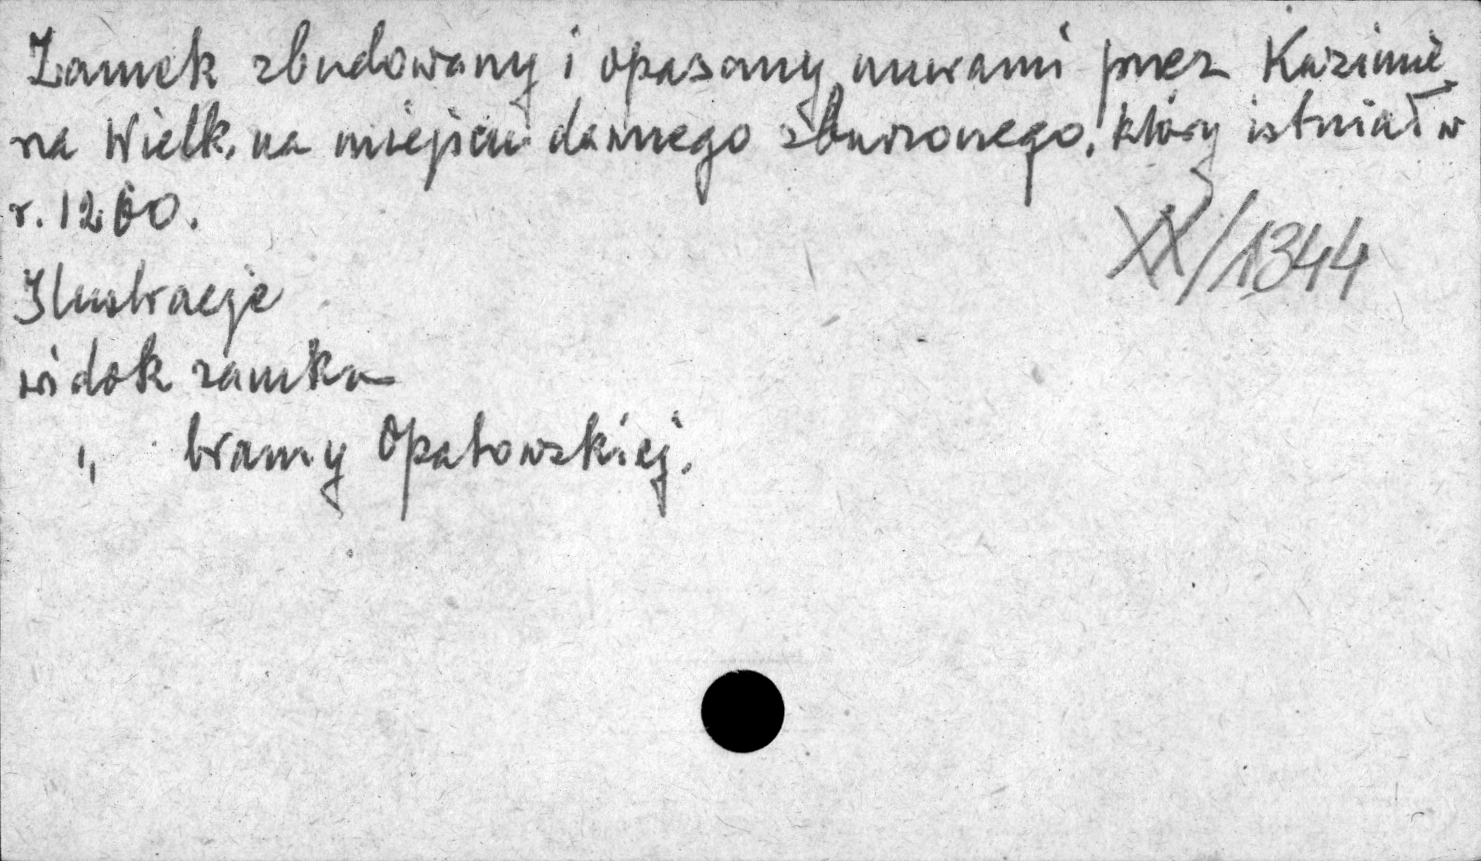 Zamek zbudowany i opasany murami przez Kazimie
rza Wielk. na miejscu dawnego zburzonego, który istniał w
r. 1260.
XX/1344
Ilustracje
widok zamku
„ bramy Opatowskiej.